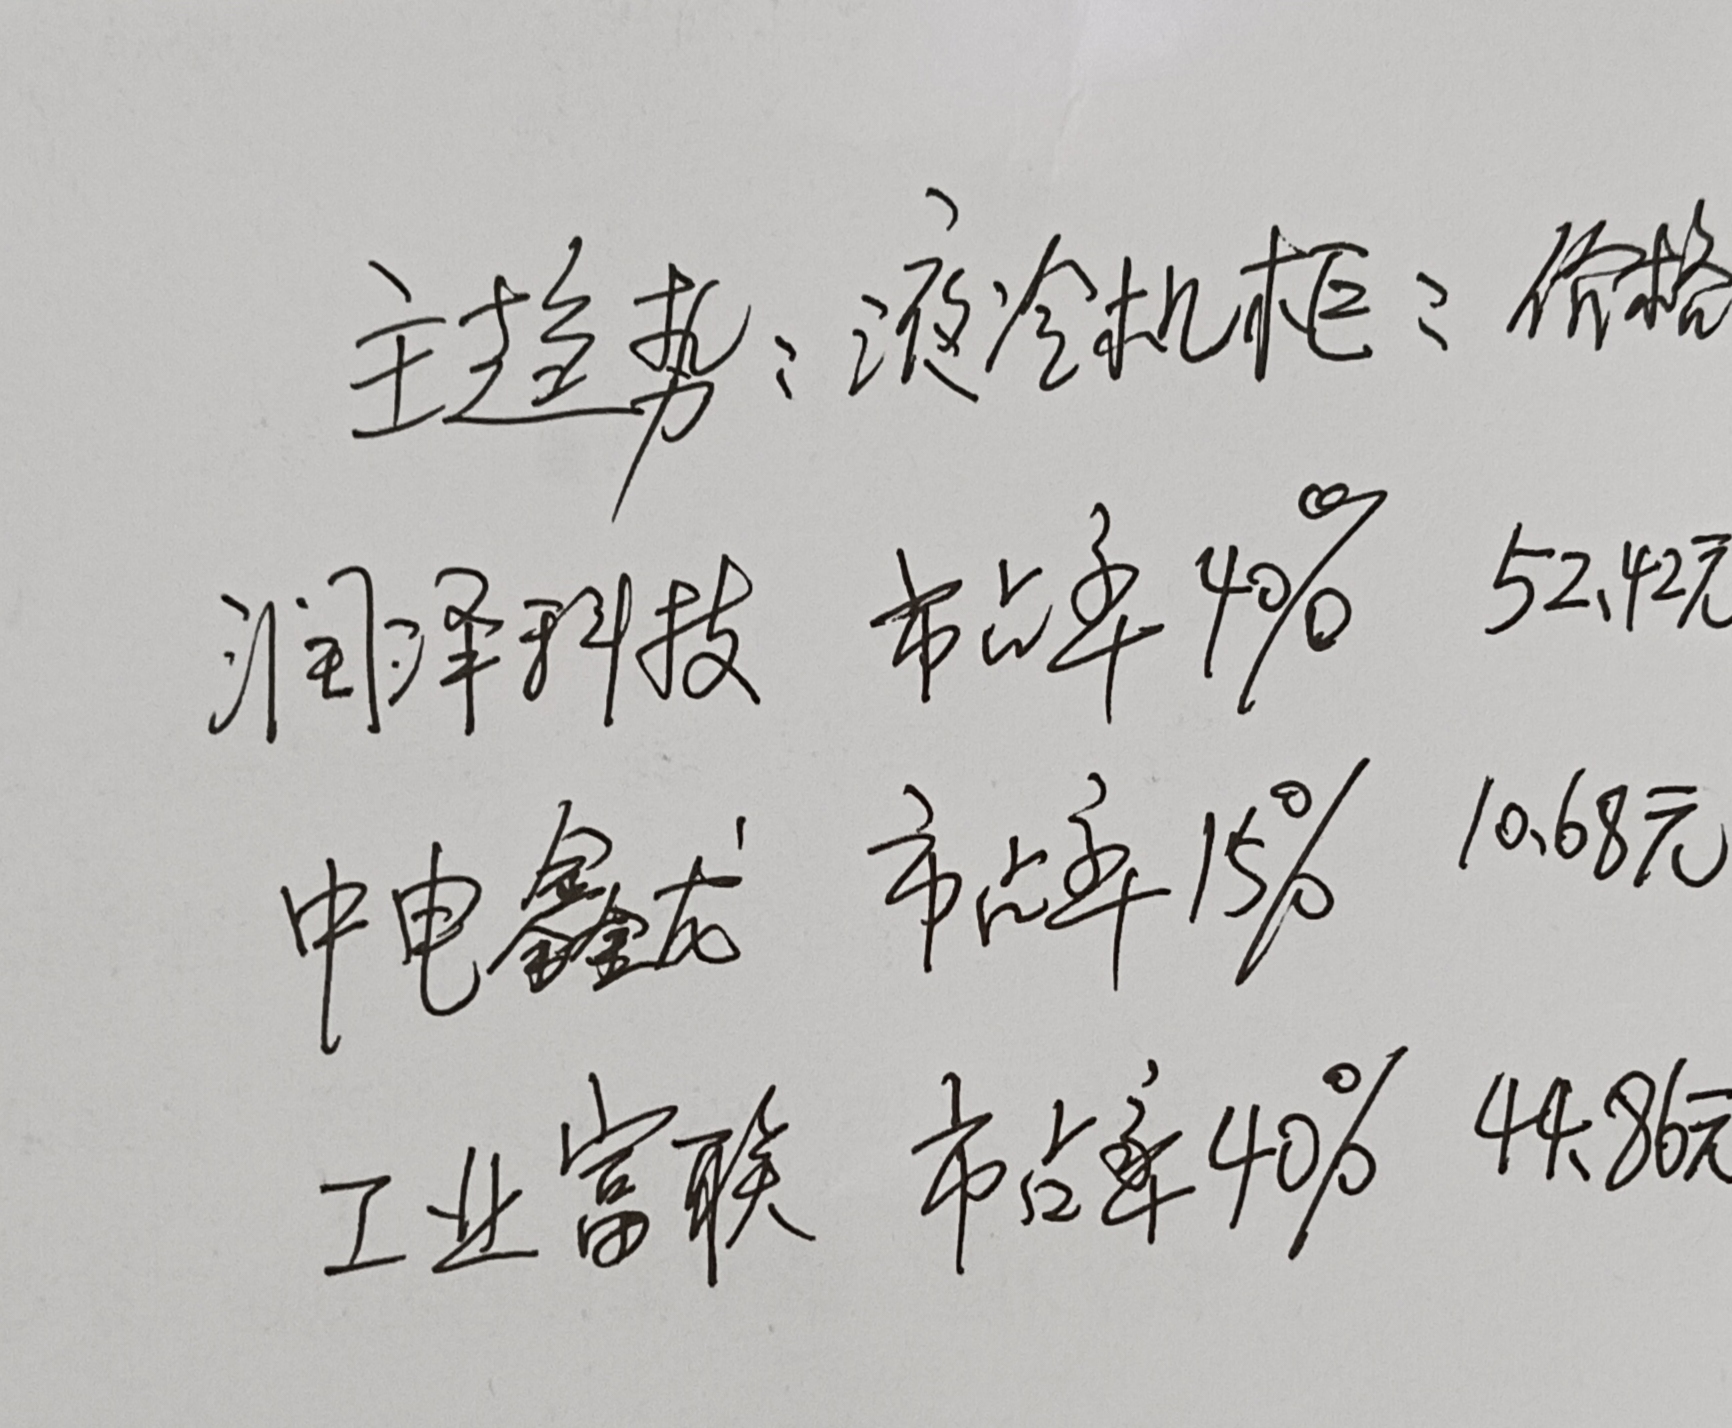 主趋势：液冷机柜：价格
润泽科技 市占率40% 52.42元
中电鑫龙 市占率15% 10.68元
工业富联 市占率40% 44.86元